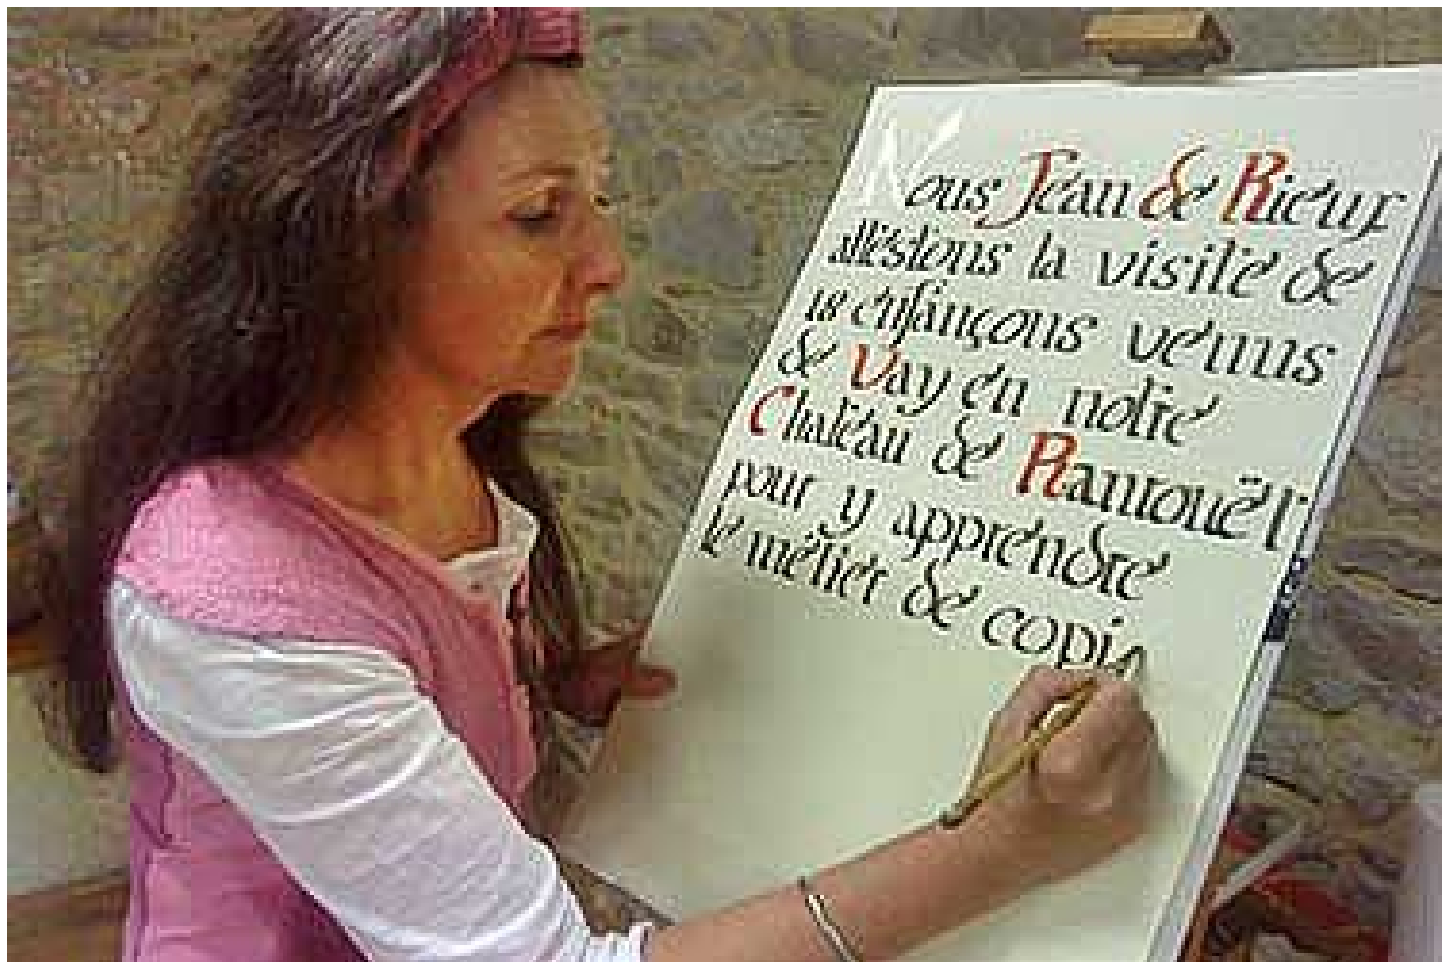 Nous Jean de Rieux
attestons la visite de
18 enfançons venus
de Vay en notre
Château de Ranrouët
pour y apprendre
le métier de copis